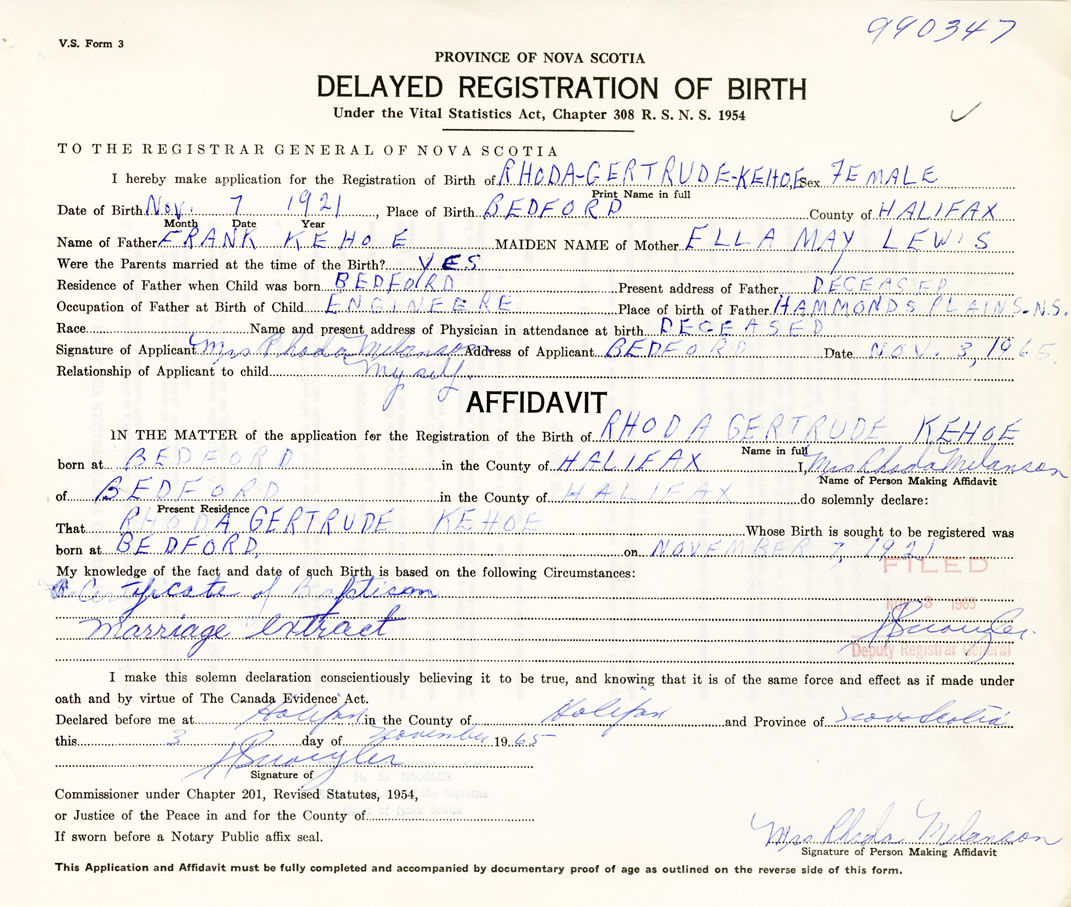 990347
V.S. Form 3
PROVINCE OF NOVA SCOTIA
DELAYED REGISTRATION OF BIRTH
Under the Vital Statistics Act, Chapter 308 R. S. N. S. 1954
TO THE REGISTRAR GENERAL OF NOVA SCOTIA
I hereby make application for the Registration of Birth of RHODA-GERTRUDE-KEHOE Sex FEMALE
Print Name in full
Date of Birth Nov. 7 1921, Place of Birth BEDFORD County of HALIFAX
Month Date Year
Name of Father FRANK KEHOE MAIDEN NAME of Mother ELLA MAY LEWIS
Were the Parents married at the time of the Birth? YES
Residence of Father when Child was born BEDFORD Present address of Father DECEASED
Occupation of Father at Birth of Child ENGINEERE Place of birth of Father HAMMONDS PLAINS-N.S.
Race Name and present address of Physician in attendance at birth DECEASED
Signature of Applicant Mrs Rhoda Melanson Address of Applicant BEDFORD Date NOV. 3, 1965.
Relationship of Applicant to child Myself.
AFFIDAVIT
IN THE MATTER of the application for the Registration of the Birth of RHODA GERTRUDE KEHOE
Name in full
born at BEDFORD in the County of HALIFAX I, Mrs Rhoda Melanson
Name of Person Making Affidavit
of BEDFORD in the County of HALIFAX do solemnly declare:
Present Residence
That RHODA GERTRUDE KEHOE Whose Birth is sought to be registered was
born at BEDFORD, on NOVEMBER 7, 1921
FILED
My knowledge of the fact and date of such Birth is based on the following Circumstances:
Certificate of Baptism
3 1965
Marriage extract
Deputy Registrar General
I make this solemn declaration conscientiously believing it to be true, and knowing that it is of the same force and effect as if made under
oath and by virtue of The Canada Evidence Act.
Declared before me at Halifax in the County of Halifax and Province of Nova Scotia
this 3 day of November 1965
Signature of
H. E. NAUGLER
the Supreme
of Nova Scotia
Commissioner under Chapter 201, Revised Statutes, 1954,
or Justice of the Peace in and for the County of
If sworn before a Notary Public affix seal.
Mrs Rhoda Melanson
Signature of Person Making Affidavit
This Application and Affidavit must be fully completed and accompanied by documentary proof of age as outlined on the reverse side of this form.